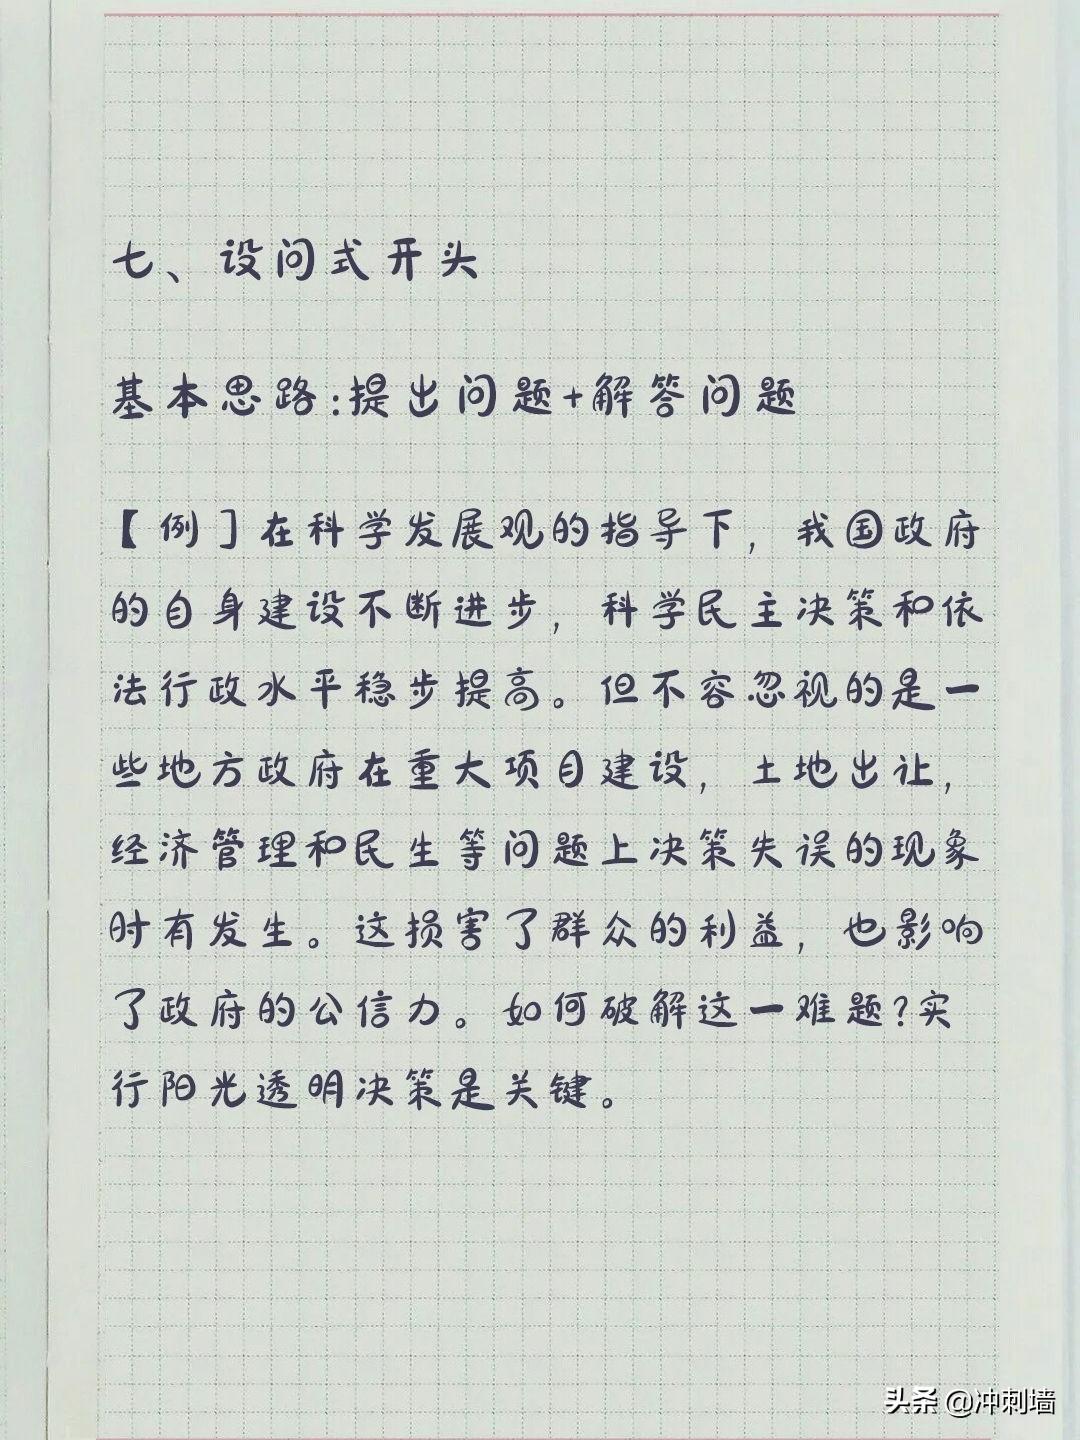 七、设问式开头
基本思路:提出问题+解答问题
【例】在科学发展观的指导下，我国政府
的自身建设不断进步，科学民主决策和依
法行政水平稳步提高。但不容忽视的是一
些地方政府在重大项目建设，土地出让，
经济管理和民生等问题上决策失误的现象
时有发生。这损害了群众的利益，也影响
了政府的公信力。如何破解这一难题?实
行阳光透明决策是关键。
头条 @冲刺墙